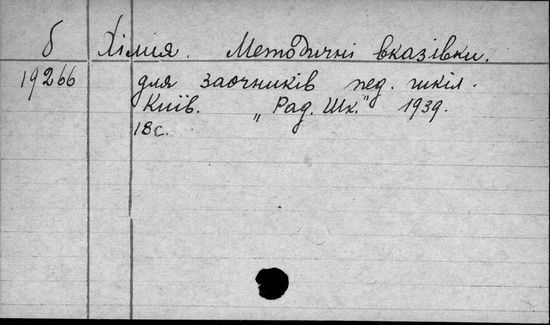 б Хімія. Методичні вказівки.
19266 для заочників пед. шкіл.
Київ. „Рад. Шк." 1939.
18с.